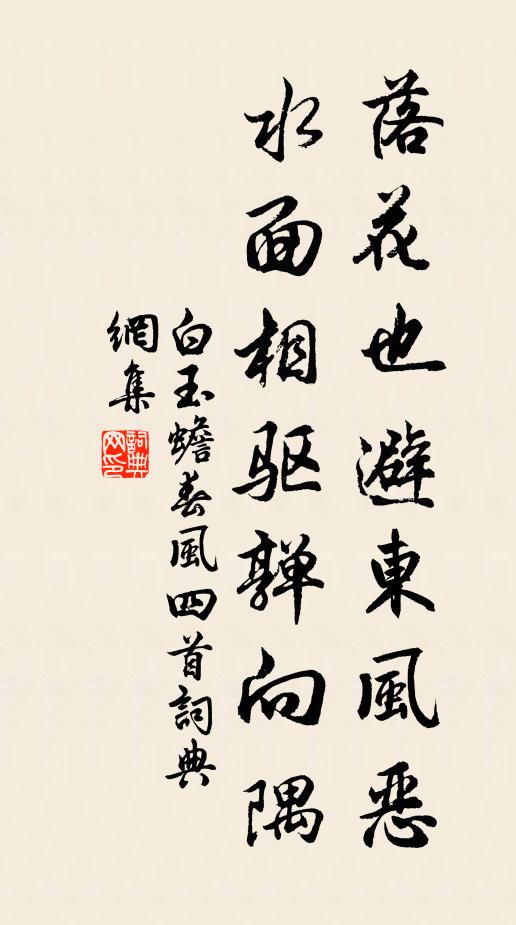 落花也避東風恶
水面相驱亸向隅
白玉蟾春風四首詞典
網集
詞典
网印